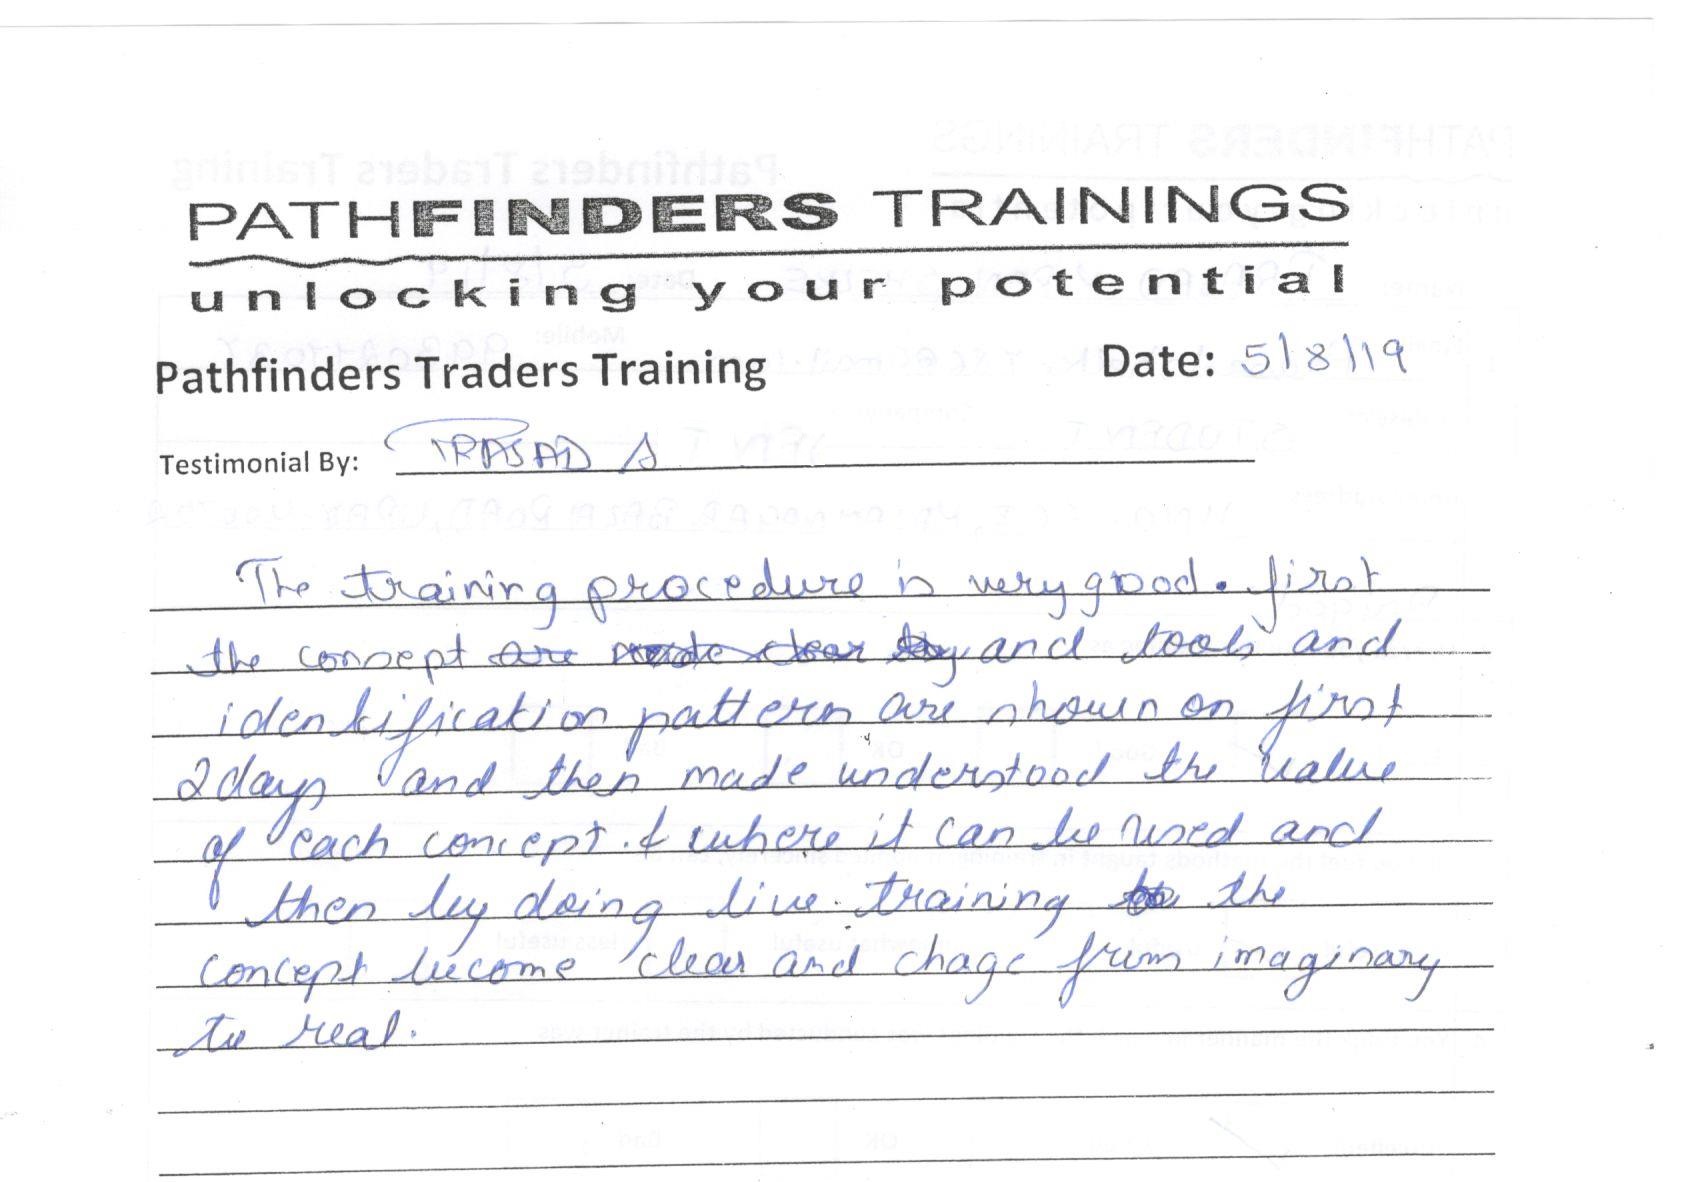 PATHFINDERS TRAININGS
unlocking your potential
Pathfinders Traders Training
Date: 5/8/19
Testimonial By: PRASAD A
The training procedure is very good. first
the consept and tools and
identification pattern are shown on first
2 days and then made understood the value
of each concept. & where it can be used and
then by doing live training the
concept become clear and chage from imaginary
to real.